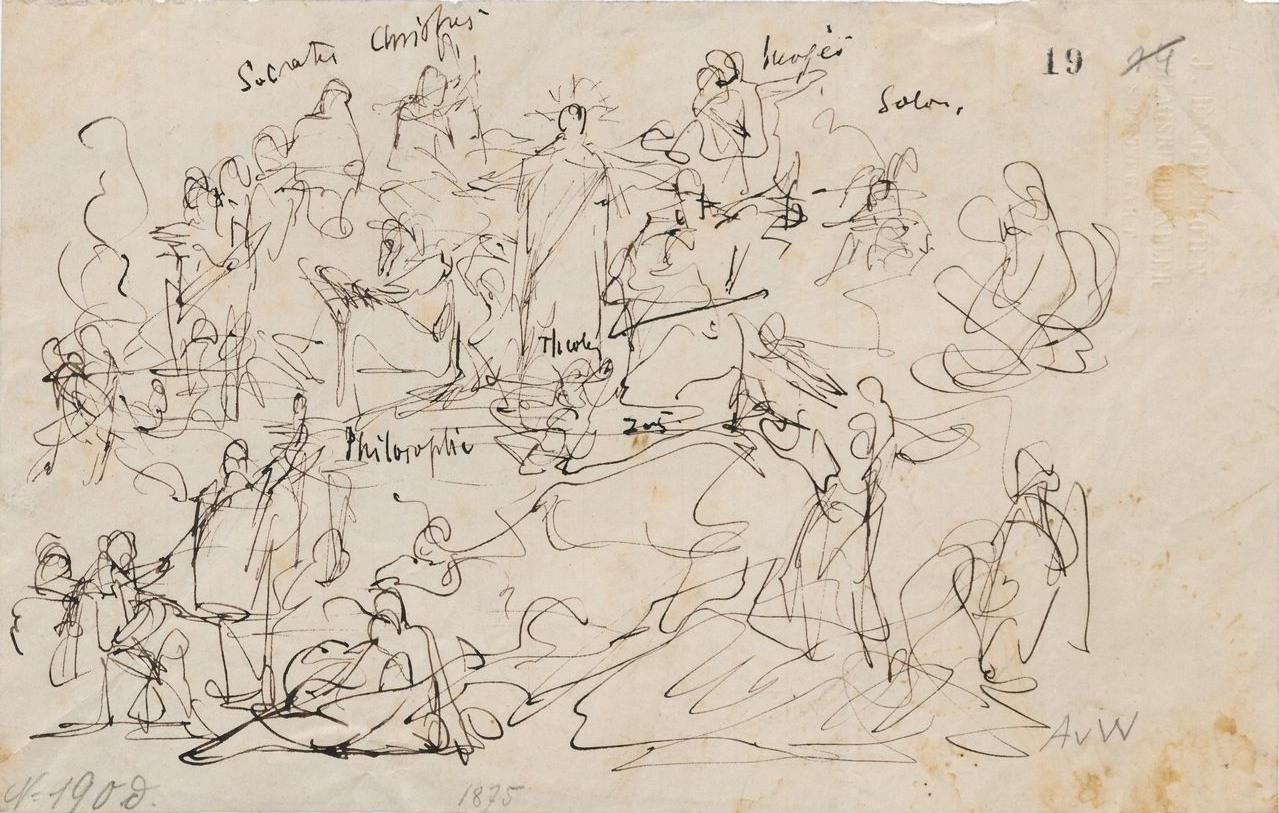 Socrates Christus
Moses
Solon.
19
14
Theol
Jus
Philosophie
AvW
N=190d.
1875